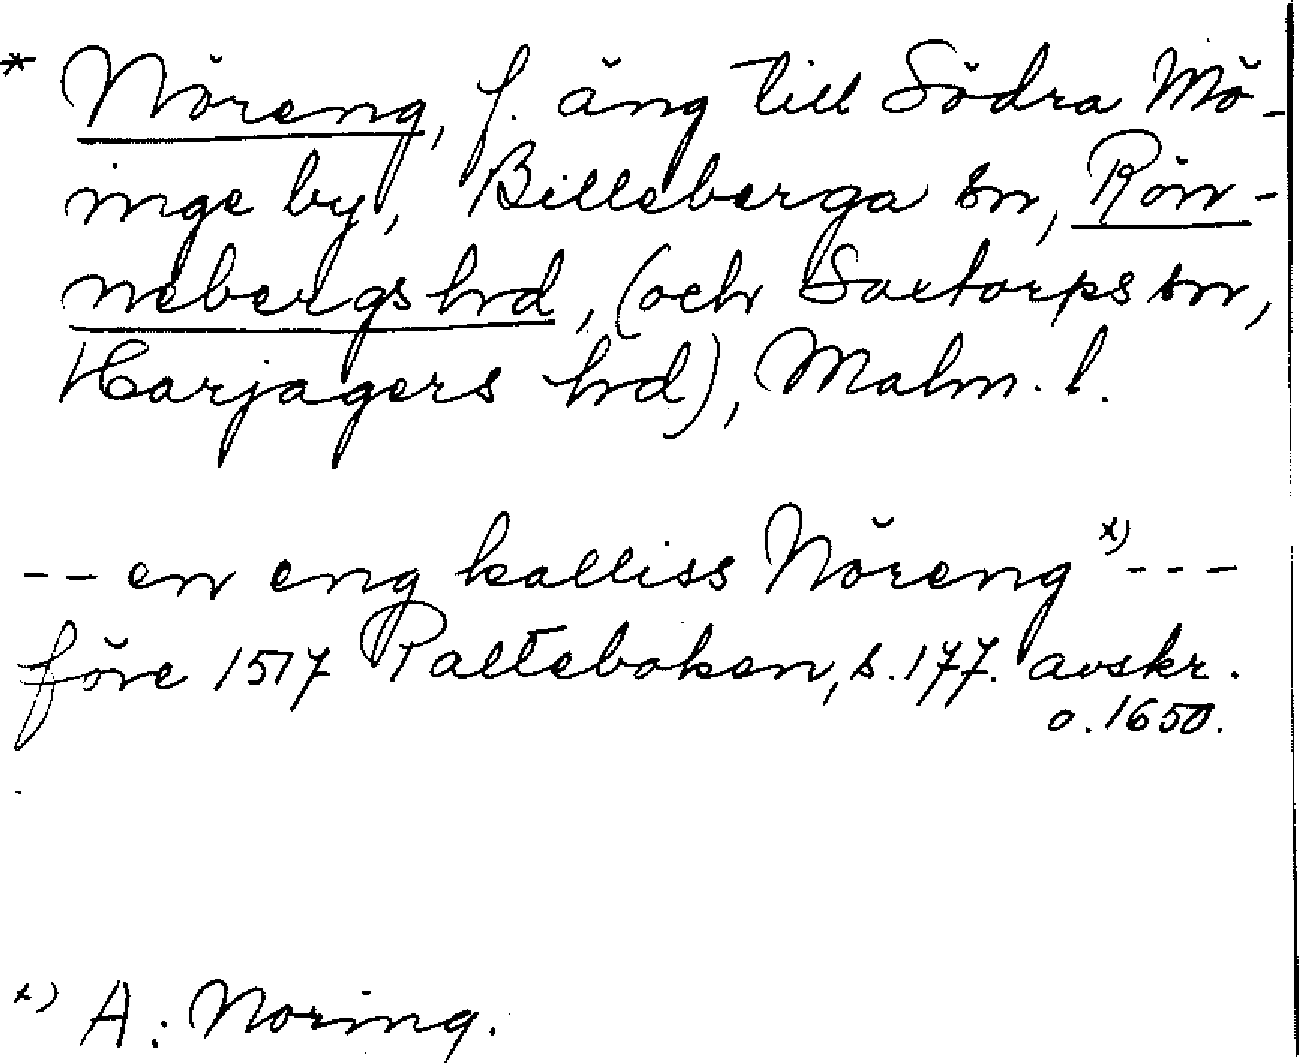 * Nöreng, f. äng till Södra Mö-
inge by, Billeberga sn, Rön-
nebergs hrd, (och Saxtorps sn,
Harjagers hrd), Malm. l.
-- en eng kalliss Nöreng x) ---
före 1517 Palteboken, s. 177. avskr.
o. 1650.
x) A: Noring.